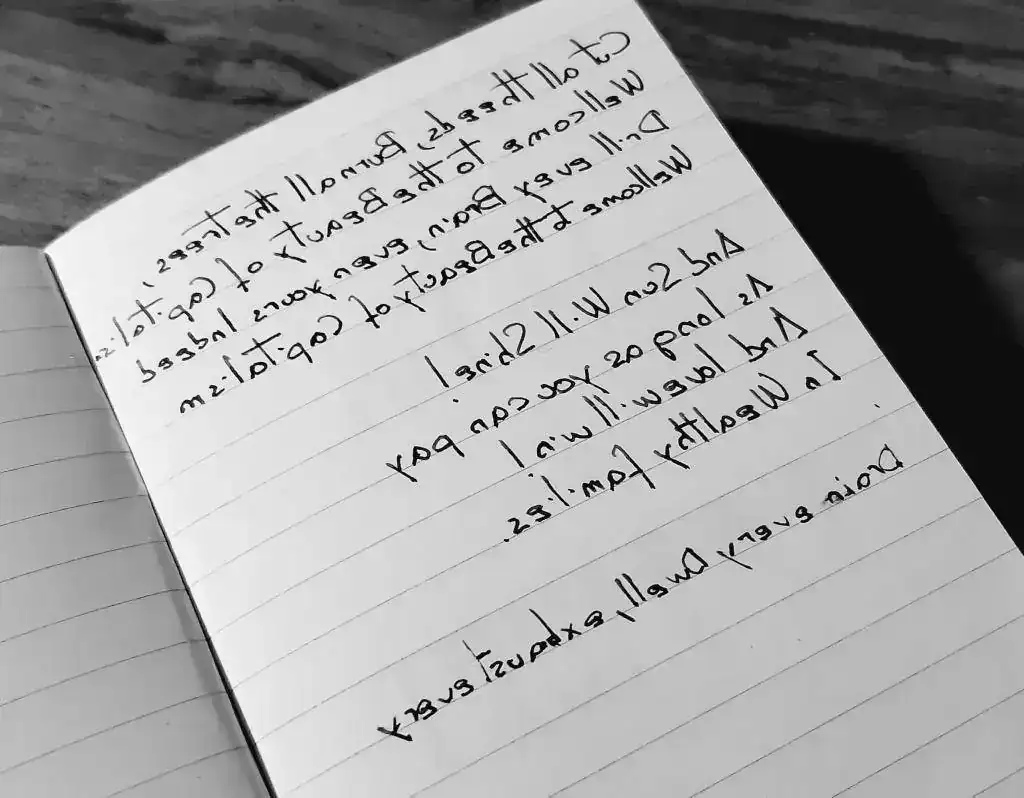 Cut all Burn all the Trees,
Wellcome To the Beauty of Capitalism
Drill evey Brain, even yours Indeed
Wellcome to the Beauty of Capitalism
And Sun Will Shine!
As long as you can pay
And love will win!
In Wealthy families.
Drain every Dwell, exhaust every